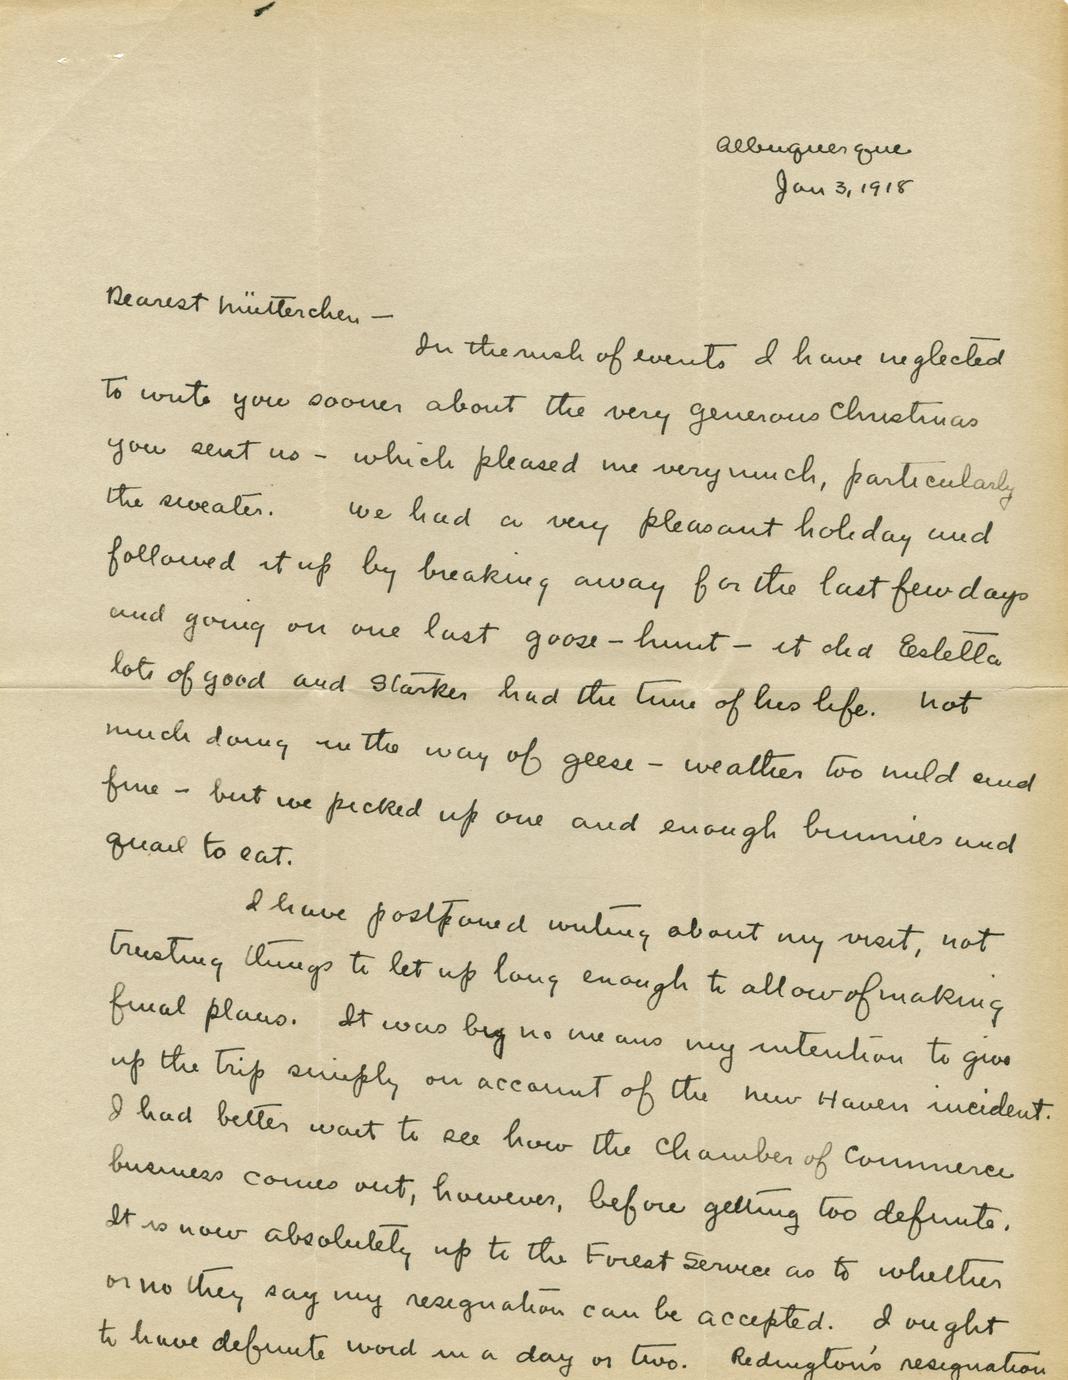 Albuquerque
Jan 3, 1918
Dearest Mütterchen —
In the rush of events I have neglected
to write you sooner about the very generous Christmas
you sent us – which pleased me very much, particularly
the sweater. We had a very pleasant holiday and
followed it up by breaking away for the last few days
and going on one last goose-hunt – it did Estella
lots of good and Starker had the time of his life. Not
much doing in the way of geese – weather too mild and
fine – but we picked up one and enough bunnies and
quail to eat.
I have postponed writing about my visit, not
trusting things to let up long enough to allow of making
final plans. It was by no means my intention to give
up the trip simply on account of the New Haven incident.
I had better wait to see how the Chamber of Commerce
business comes out, however, before getting too definite.
It is now absolutely up to the Forest Service as to whether
or no they say my resignation can be accepted. I ought
to have definite word in a day or two. Redington's resignation